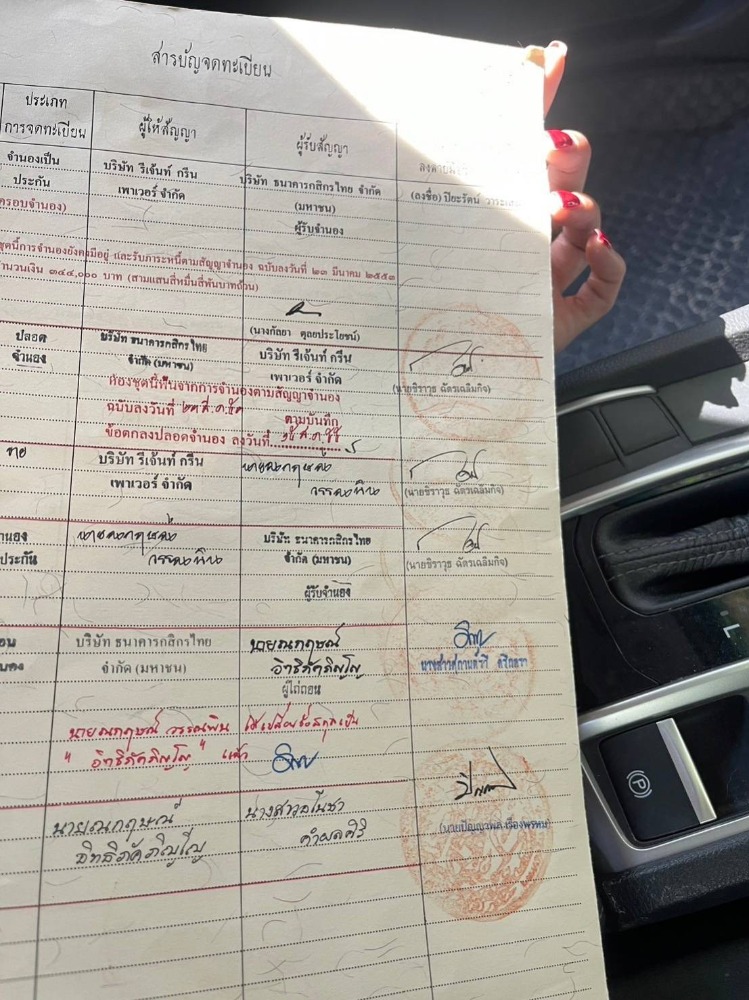 สารบัญจดทะเบียน
ประเภท
การจดทะเบียน
ผู้ให้สัญญา
ผู้รับสัญญา
จำนองเป็น
ประกัน
ครอบจำนอง)
บริษัท รีเจ้นท์ กรีน
เพาเวอร์ จำกัด
บริษัท ธนาคารกสิกรไทย จำกัด
(มหาชน)
ผู้รับจำนอง
(ลงชื่อ) ปิยะรัตน์
ชุดนี้การจำนองยังคงมีอยู่ และรับภาระหนี้ตามสัญญาจำนอง ฉบับลงวันที่ ๒๓ มีนาคม ๒๕๕๓
จำนวนเงิน ๓๔๔,๐๐๐ บาท (สามแสนสี่หมื่นสี่พันบาทถ้วน)
(นางกัลยา ตุลยประโยชน์)
ปลอด
จำนอง
บริษัท ธนาคารกสิกรไทย
จำกัด (มหาชน)
บริษัท รีเจ้นท์ กรีน
เพาเวอร์ จำกัด
(นายชิราวุธ ฉัตรเฉลิมกิจ)
ห้องชุดนี้พ้นจากการจำนองตามสัญญาจำนอง
ฉบับลงวันที่ ตามบันทึก
ข้อตกลงปลอดจำนอง ลงวันที่
ขาย
บริษัท รีเจ้นท์ กรีน
เพาเวอร์ จำกัด
นายณกฤษณ์
วรรณพิน
(นายชิราวุธ ฉัตรเฉลิมกิจ)
จำนอง
ประกัน
นายณกฤษณ์
วรรณพิน
บริษัท ธนาคารกสิกรไทย
จำกัด (มหาชน)
ผู้รับจำนอง
(นายชิราวุธ ฉัตรเฉลิมกิจ)
บริษัท ธนาคารกสิกรไทย
จำกัด (มหาชน)
นายณกฤษณ์
อิทธิภัคภิญโญ
ผู้ไถ่ถอน
นายณกฤษณ์ วรรณพิน ได้เปลี่ยนชื่อสกุลเป็น
" อิทธิภัคภิญโญ " แล้ว
นายณกฤษณ์
อิทธิภัคภิญโญ
นางสาว
(P)
L